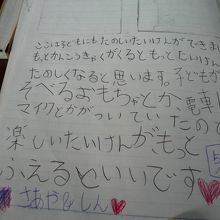 ここは子どもにもたのしいたいけんができます
もっとかんこうきゃくがくるともっとたいけん
たのしくなると思います。子どもが
そべるおもちゃとか電車
マイクとかがついていたの
楽しいたいけんがもっと
ふえるといいです
さあや&しん